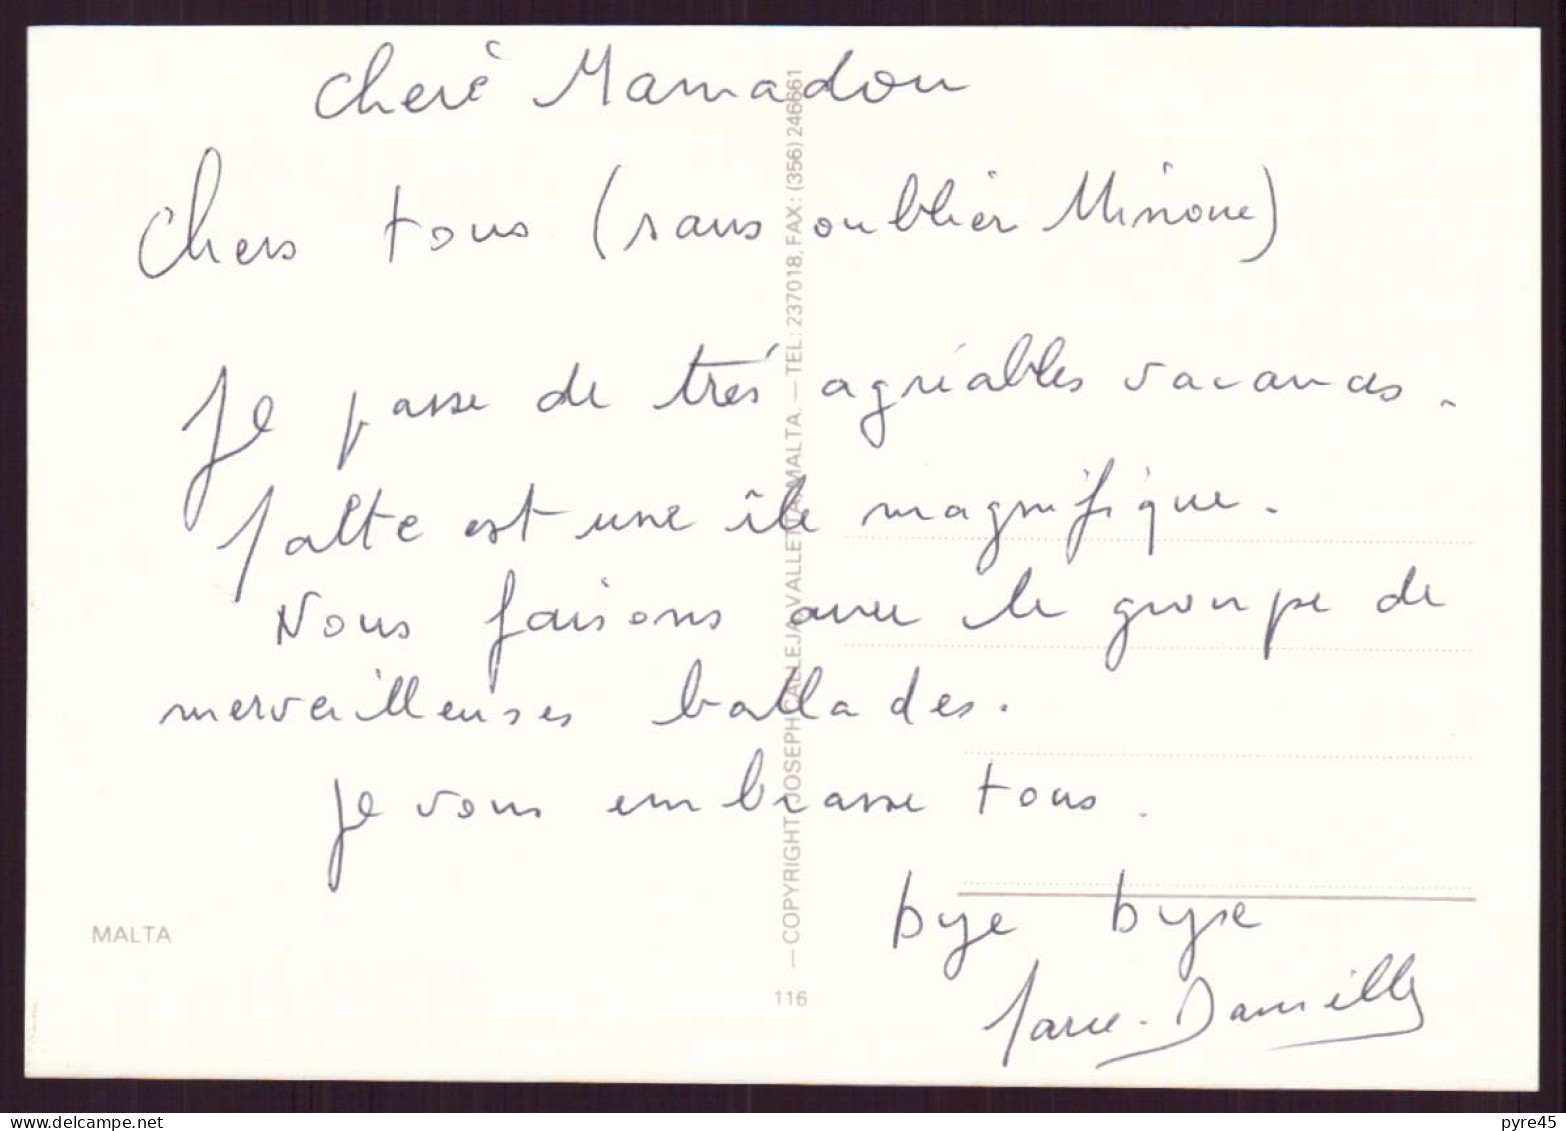 Cheré Mamadou
Chers tous (sans oublier Minoue)
Je passe de trés agréables vacances.
Malte est une île magnifique.
Nous faisons avec le groupe de
merveilleuses ballades.
Je vous embrasse tous.
bye bye
Marie-Danielle
MALTA
— COPYRIGHT JOSEPH CALLEJA VALLETTA MALTA. — TEL: 237018, FAX: (356) 246661
116
pyre45